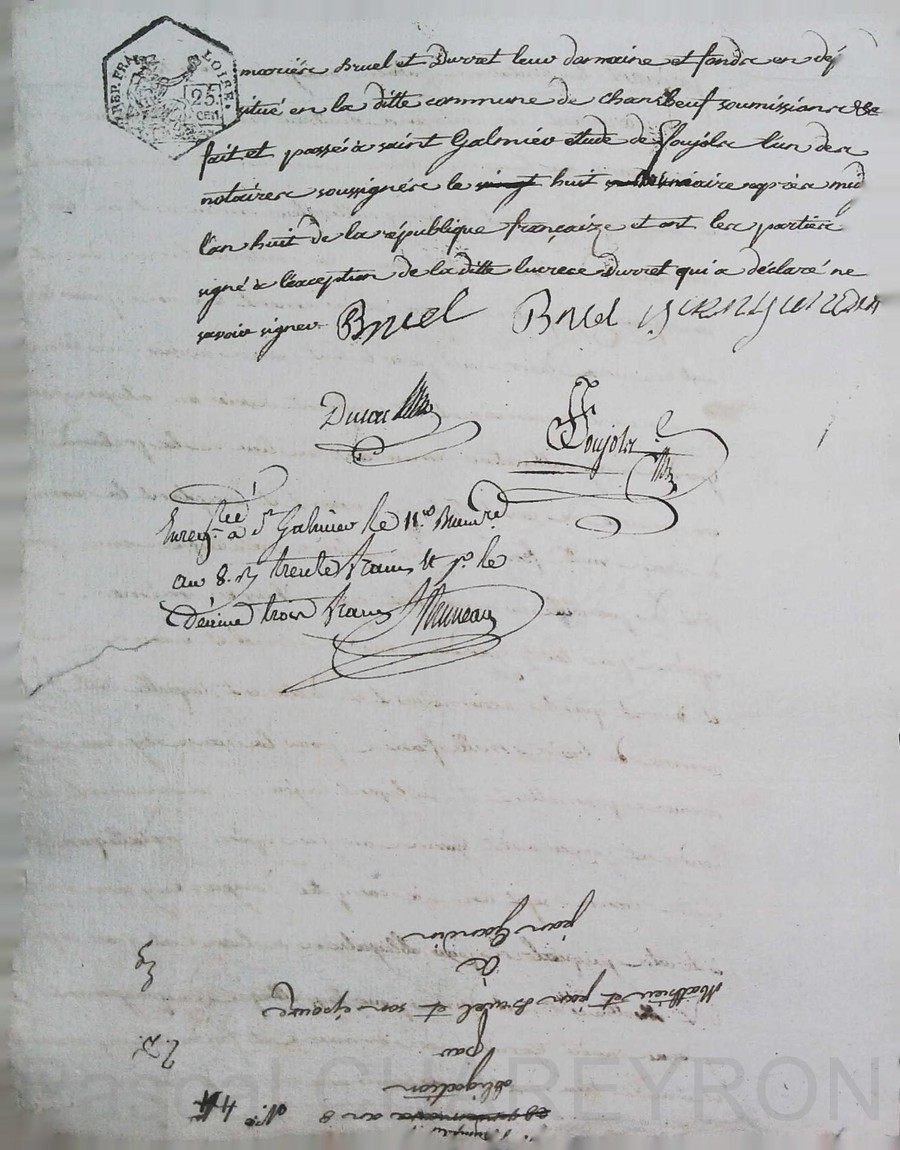 REP. FRA. LOIRE.
25
cen
mariés Bruel et Durret leur domaine et fonds en dép
situé en la ditte commune de chambeuf soumissions &a
fait et passé à saint Galmier etude de Soujols l'un des
notaires soussignés le vingt huit après midy
l'an huit de la république françaize et ont les parties
signé à l'exception de la ditte lucrece Durret qui a déclaré ne
savoir signer Bruel Bruel
Soujols
Enregtré à St Galmier le 11
au 8. trente francs le
Décime trois francs
jean
à
Mathieu et jean Bruel et son épouze
par
obligation
an 8 No
Pascal CHABEYRON